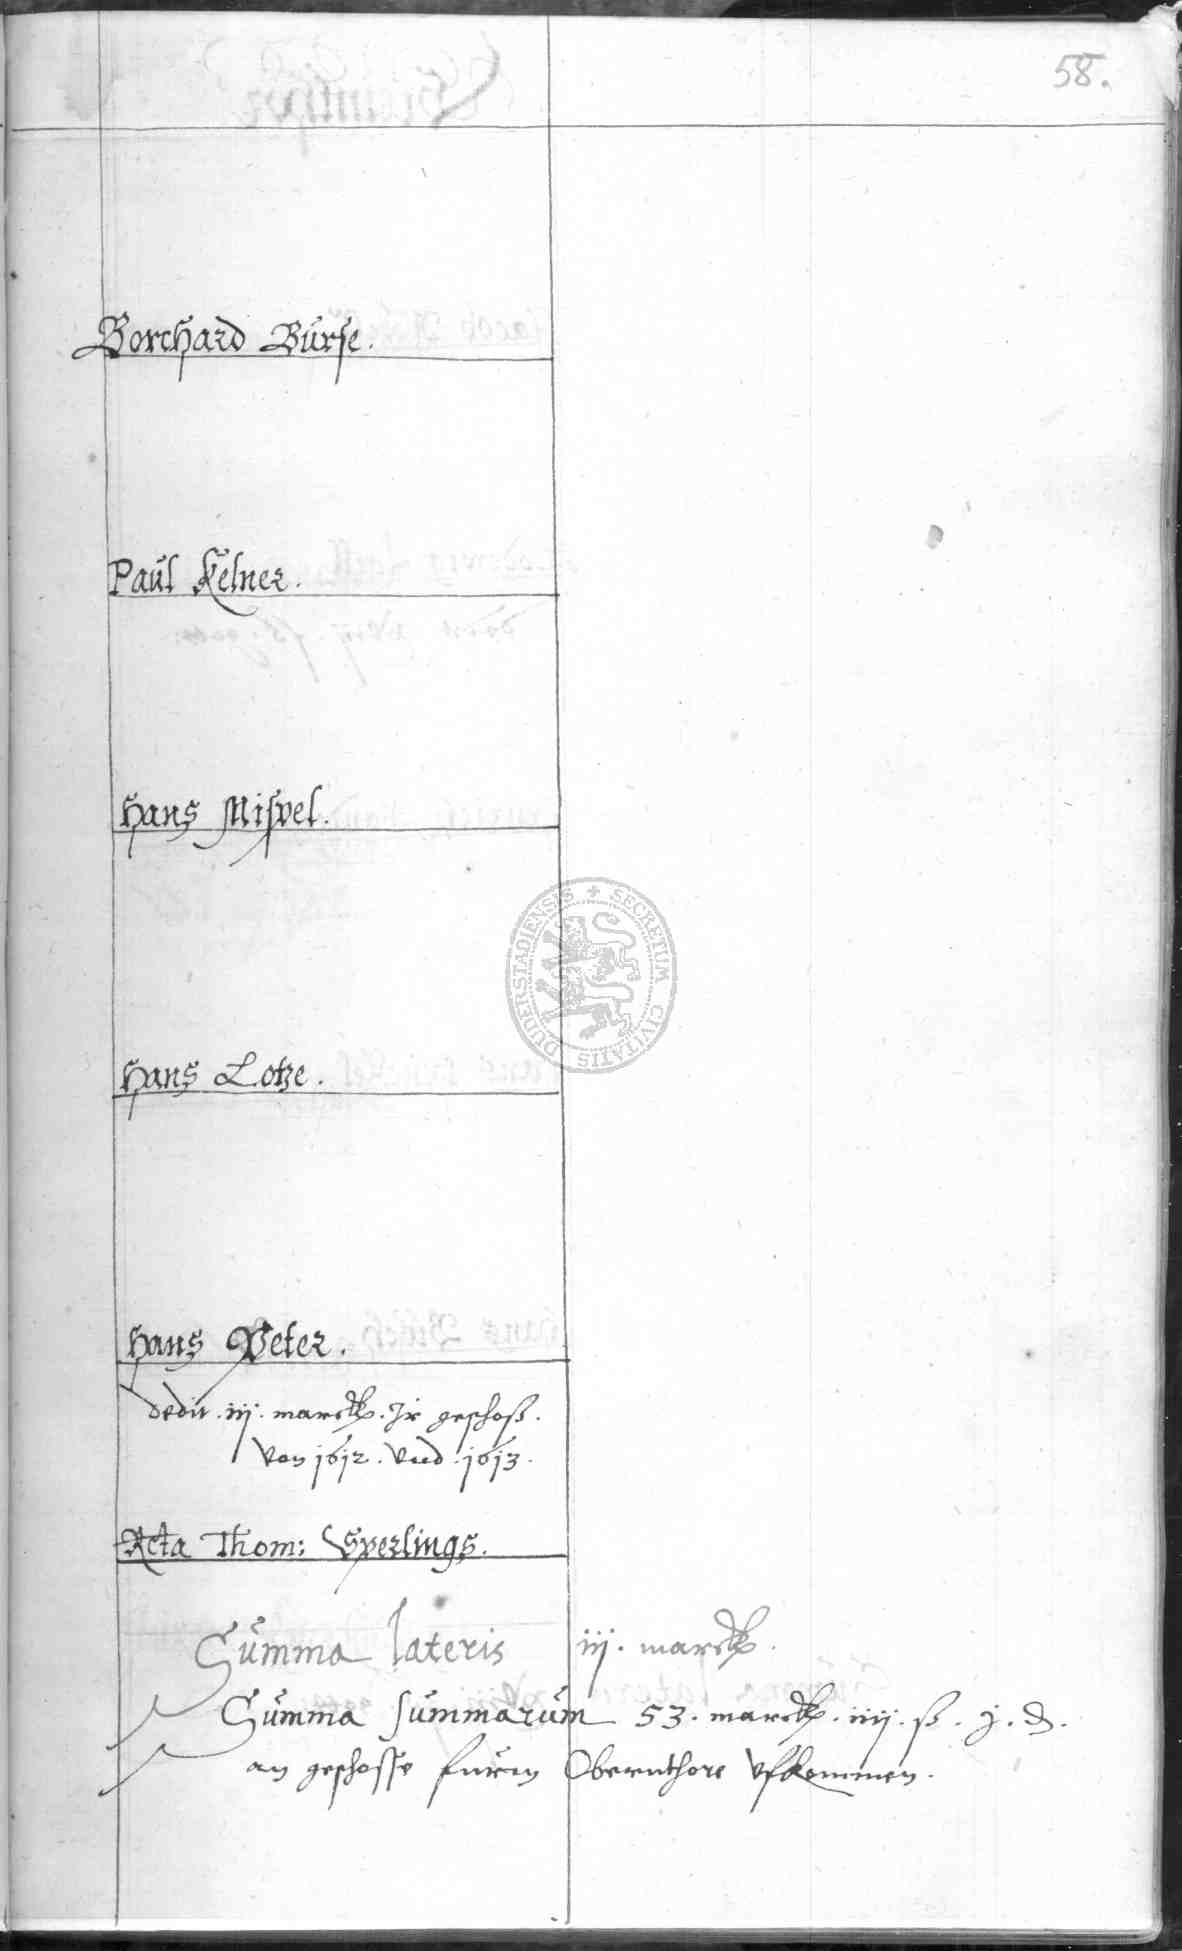 58.
Borchard Burse.
Paul Kelner.
Hans Mispel.
Hans Lotze.
Hans Peter.
dedit . iij . marck . Jr geschoß .
von 1612 . vnd . 1613 .
Acta Thom: Sperlings.
Summa lateris iij . marck .
Summa summarum 53 . marck . iiij . ß . j . d .
an geschosse furm Obernthore vfkommen .
SECRETUM CIVITATIS DUDERSTADIENSIS